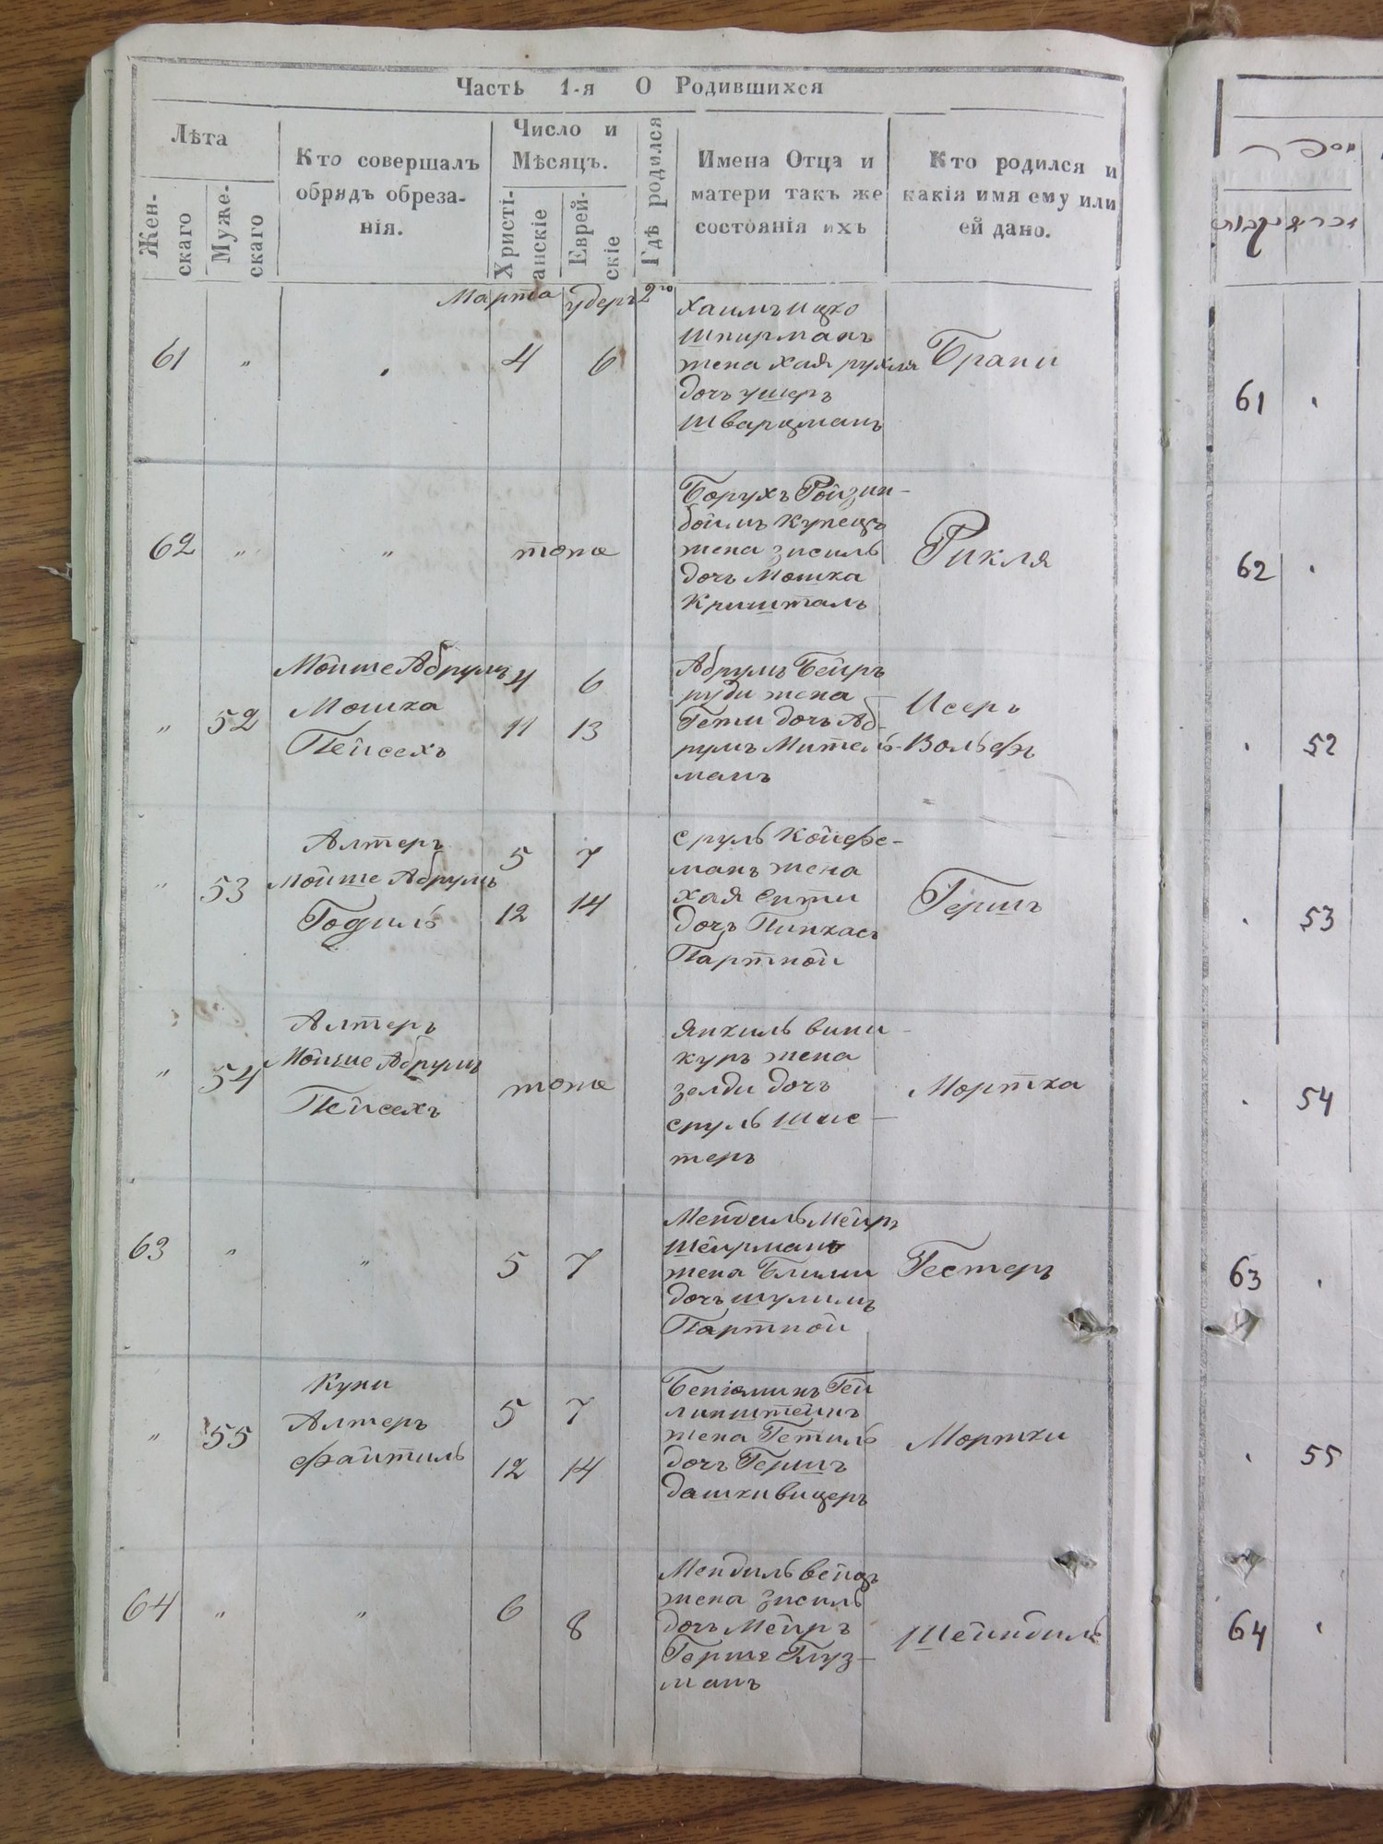 Часть 1-я О Родившихся
Лѣта
Жен-
скаго
Муже-
скаго
Кто совершалъ
обрядъ обреза-
нія.
Число и
Мѣсяцъ.
Христі-
анскіе
Еврей-
скіе
Гдѣ родился
Имена Отца и
матери такъ же
состоянія ихъ
Кто родился и
какія имя ему или
ей дано.
Марта удеръ 2го
61 " . 4 6
Хаимъ Ицко
Шпирманъ
жена хая рухля
дочъ ушеръ
Шварцманъ
Брани
62 " " тоже
Борухъ Ройзин-
боимъ купецъ
жена зисиль
дочъ Мошка
Кришталь
Рикля
" 52
Мойше Абрумъ
Мошка
Пейсехъ
4 6
11 13
Абрумъ Бейръ
руди жена
Гети дочъ Аб-
румъ Мител-
манъ
Исеръ
Вольфъ
" 53
Алтеръ
Мойше Абрумъ
Годиль
5 7
12 14
сруль Койфе-
манъ жена
хая енти
дочъ Пинхасъ
Партной
Гершъ
" 54
Алтеръ
Мойше Абрумъ
Пейсехъ
тоже
янкиль вини-
куръ жена
зелди дочъ
сруль Шис-
теръ
Мортка
63 " " 5 7
Мендиль Меиръ
Шеирманъ
жена Блими
дочъ шулимъ
Партной
Гестеръ
" 55
Куни
Алтеръ
файтиль
5 7
12 14
Беніоминъ Гей
линштейнъ
жена Гетиль
дочъ Гершъ
дашкивицеръ
Мортки
64 " " 6 8
Мендиль вейцъ
жена зисиль
дочъ Мейръ
Герше Глуз-
манъ
Шейндиль
61
62
52
53
54
63
55
64